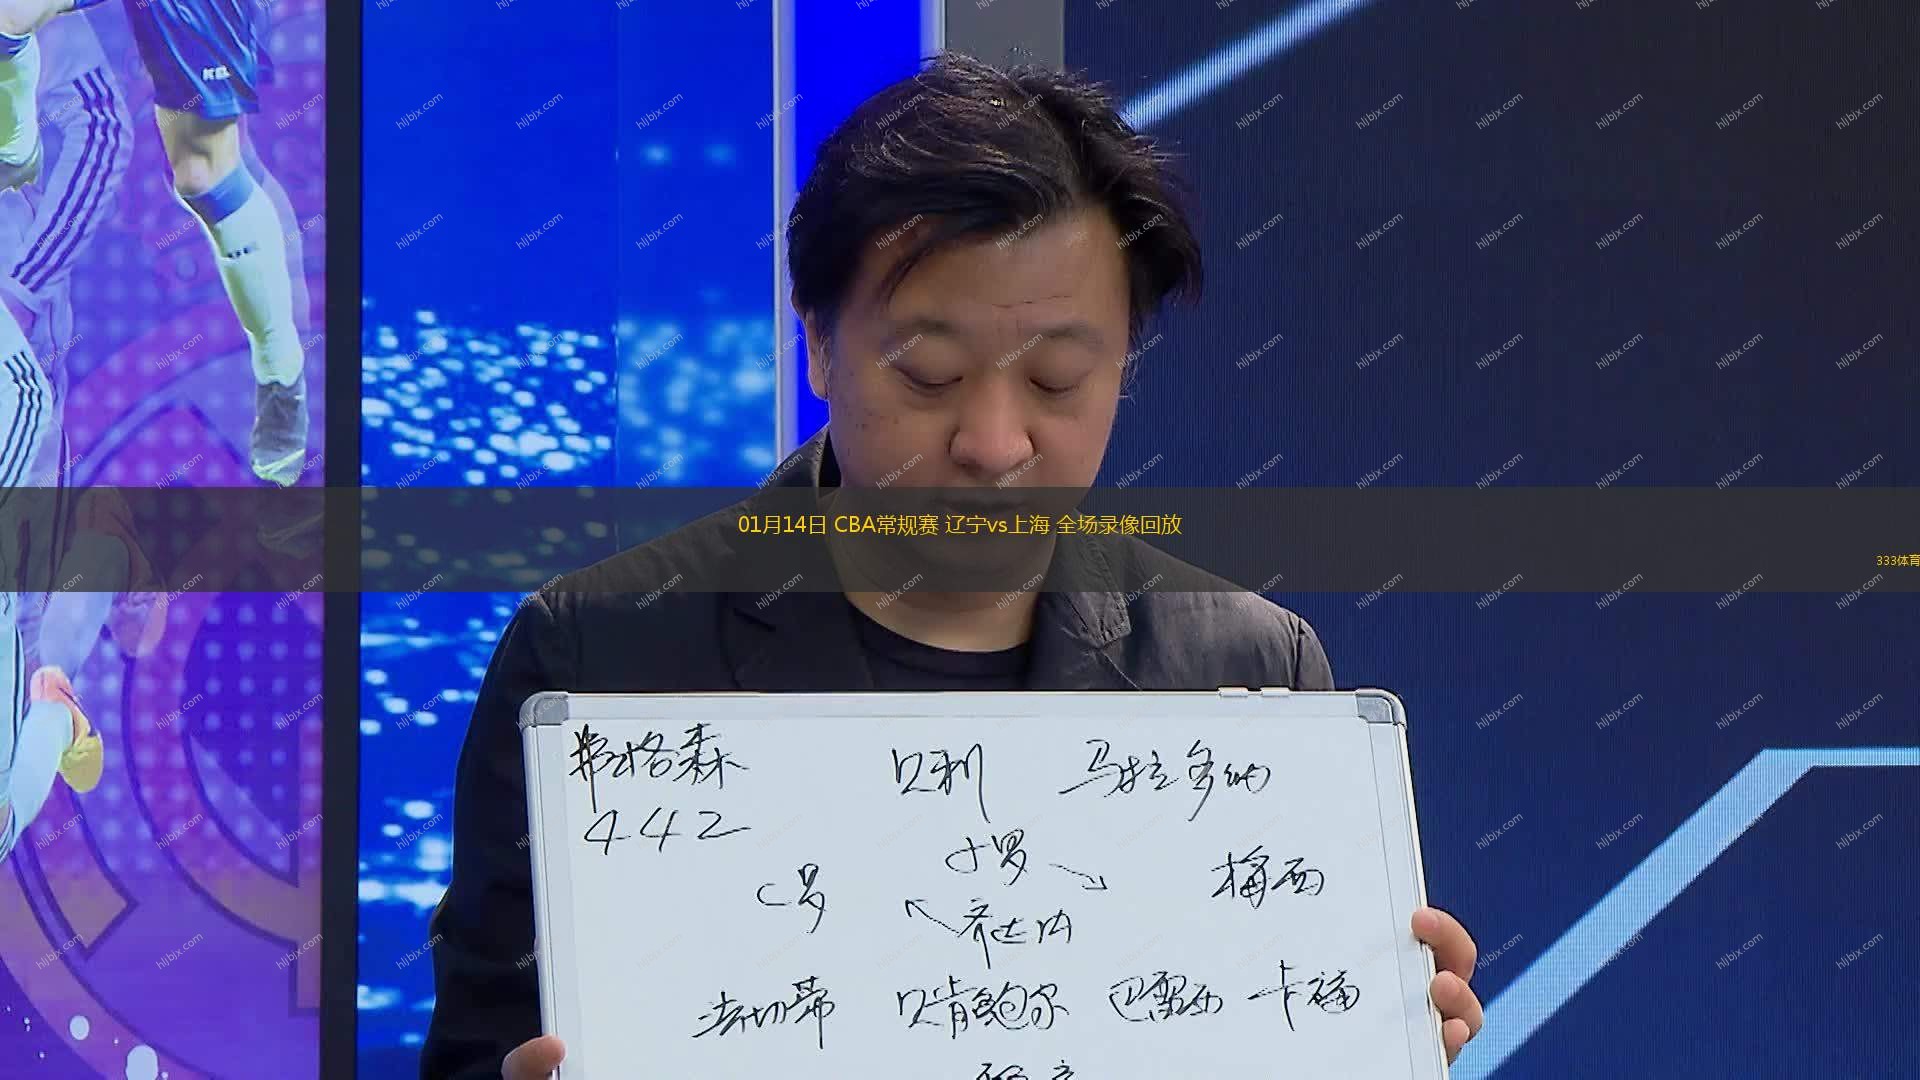 01月14日 CBA常规赛 辽宁vs上海 全场录像回放
333体育
弗格森 贝利 马拉多纳
442
小罗
C罗 梅西
齐达内
法切蒂 贝肯鲍尔 巴雷西 卡福
KEL
hljbjx.com